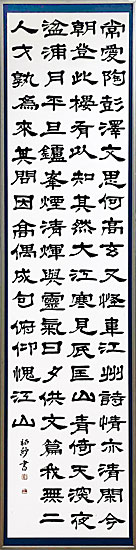 常愛陶彭澤文思何高玄又怪韋江州詩情亦清閑今
朝登此樓有以知其然大江寒見底匡山青倚天深夜
湓浦月平旦鑪峯煙清輝與靈氣日夕供文篇我無二
人才孰為來其間因高偶成句俯仰愧江山
書